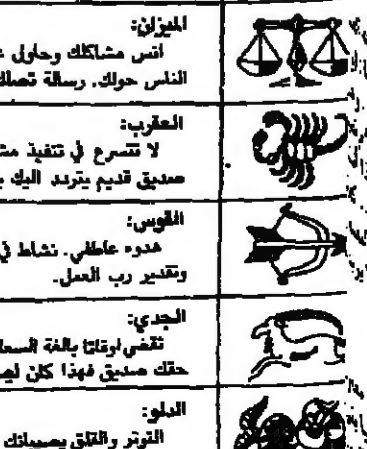 الميزان:
انس مشاكلك وحاول
الناس حولك. رسالة تصلك
العقرب:
لا تتسرع في تنفيذ
صديق قديم يتردد اليك
القوس:
هدوء عاطفي. نشاط في
وتقدير رب العمل.
الجدي:
تقضي اوقاتا بالغة
حقك صديق فهذا كان
الدلو:
التوتر والقلق يصيبانك